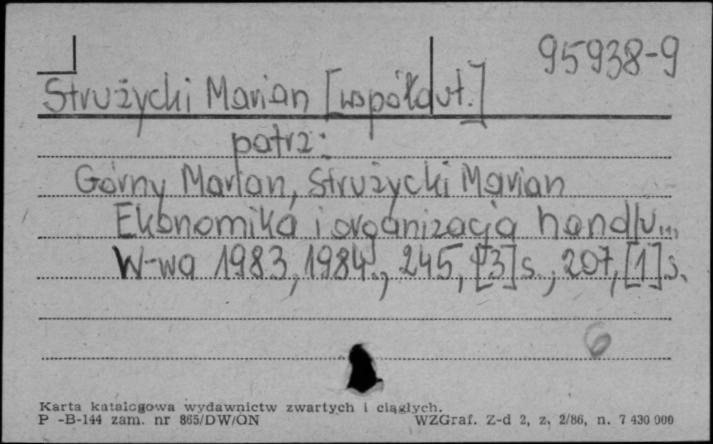 95938-9
Strużycki Marian [współaut.]
patrz:
Górny Marian, Strużycki Marian
Ekonomika i organizacja handlu...
W-wa 1983, 1984., 245, [3] s., 207, [1] s.
6
Karta katalogowa wydawnictw zwartych i ciągłych.
P -B-144 zam. nr 865/DW/ON WZGraf. Z-d 2, z. 2/86, n. 7 430 000